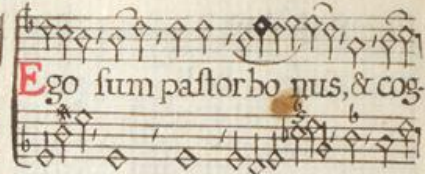 Ego ſum paſtor bo nus, & cog-